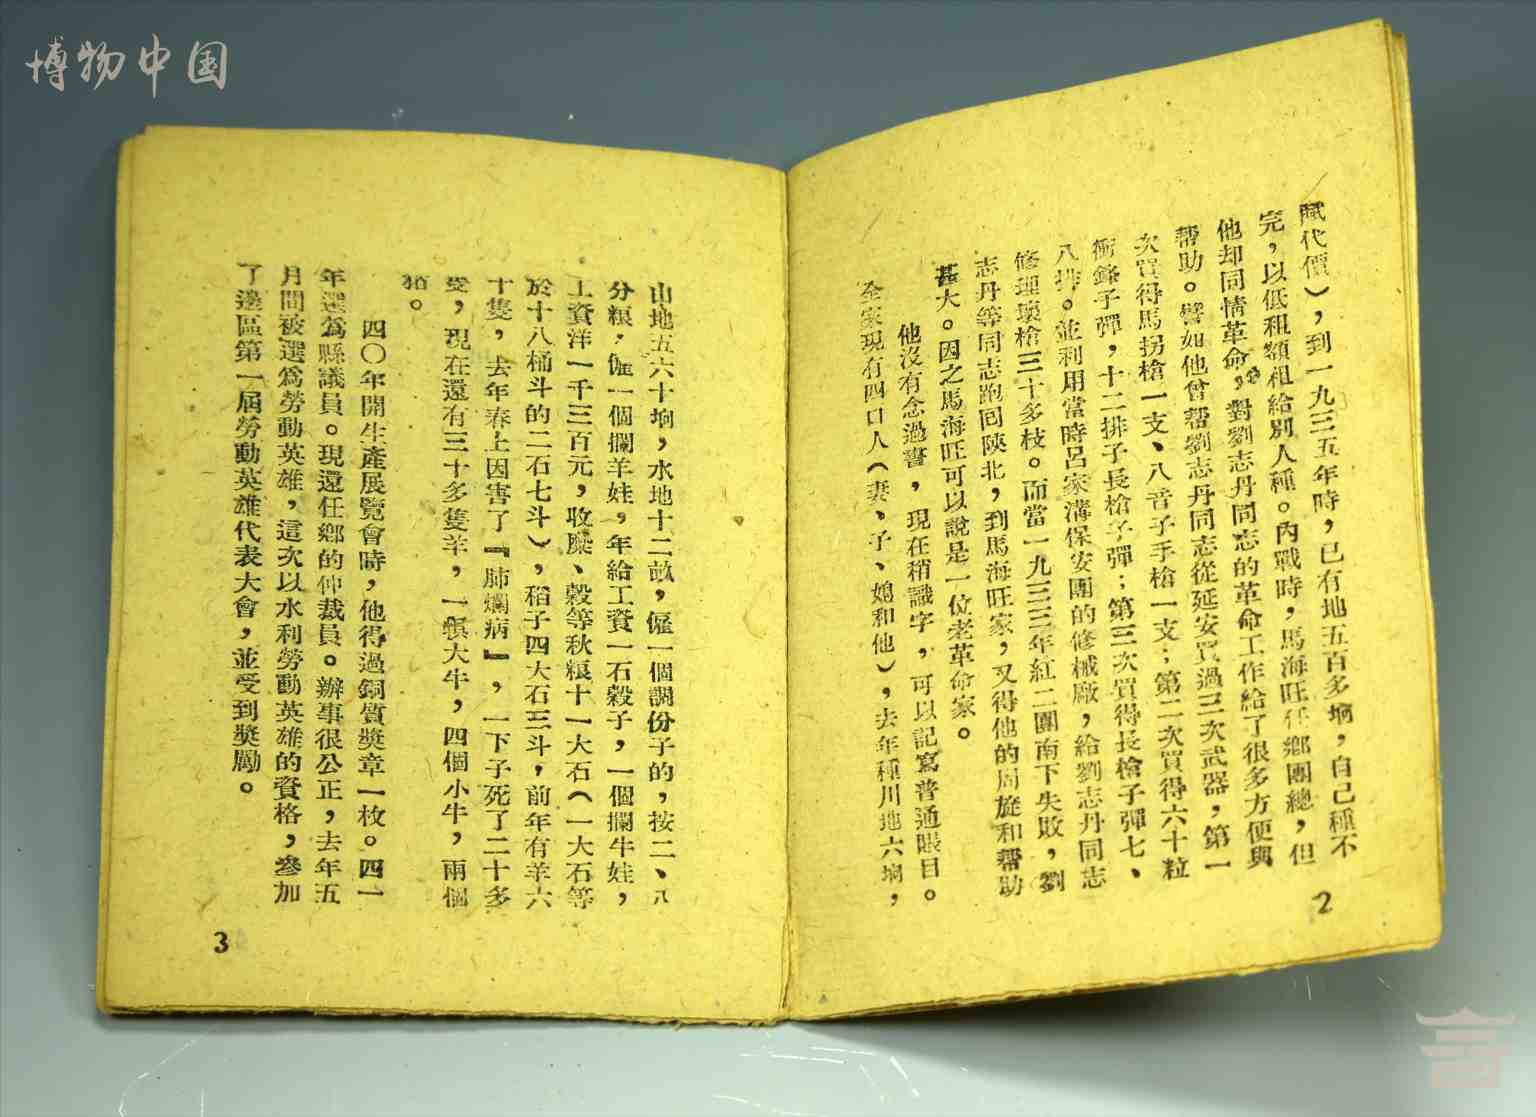 博物中国
賦代價），到一九三五年時，已有地五百多垧，自己種不
完，以低租額租給別人種。內戰時，馬海旺任鄉團總，但
他却同情革命，對劉志丹同志的革命工作給了很多方便與
帮助。譬如他曾帮劉志丹同志從延安買過三次武器，第一
次買得馬拐槍一支、八音子手槍一支；第二次買得六十粒
衝鋒子彈，十二排子長槍子彈；第三次買得長槍子彈七、
八排。並利用當時呂家溝保安團的修械廠，給劉志丹同志
修理壞槍三十多枝。而當一九三三年紅二團南下失敗，劉
志丹等同志跑回陝北，到馬海旺家，又得他的周旋和帮助
甚大。因之馬海旺可以說是一位老革命家。
他沒有念過書，現在稍識字，可以記寫普通賬目。
全家現有四口人（妻、子、媳和他），去年種川地六垧，
2
山地五六十垧，水地十二畝，僱一個調份子的，按二、八
分粮，僱一個攔羊娃，年給工資一石穀子，一個攔牛娃，
工資洋一千三百元，收糜、穀等秋粮十一大石（一大石等
於十八桶斗的二石七斗），稻子四大石三斗，前年有羊六
十隻，去年春上因害了『肺爛病』，一下子死了二十多
隻，現在還有三十多隻羊，一犋大牛，四個小牛，兩個
猪。
四〇年開生產展覽會時，他得過銅質獎章一枚。四一
年選爲縣議員。現還任鄉的仲裁員。辦事很公正，去年五
月間被選爲勞動英雄，這次以水利勞動英雄的資格，參加
了邊區第一屆勞動英雄代表大會，並受到獎勵。
3